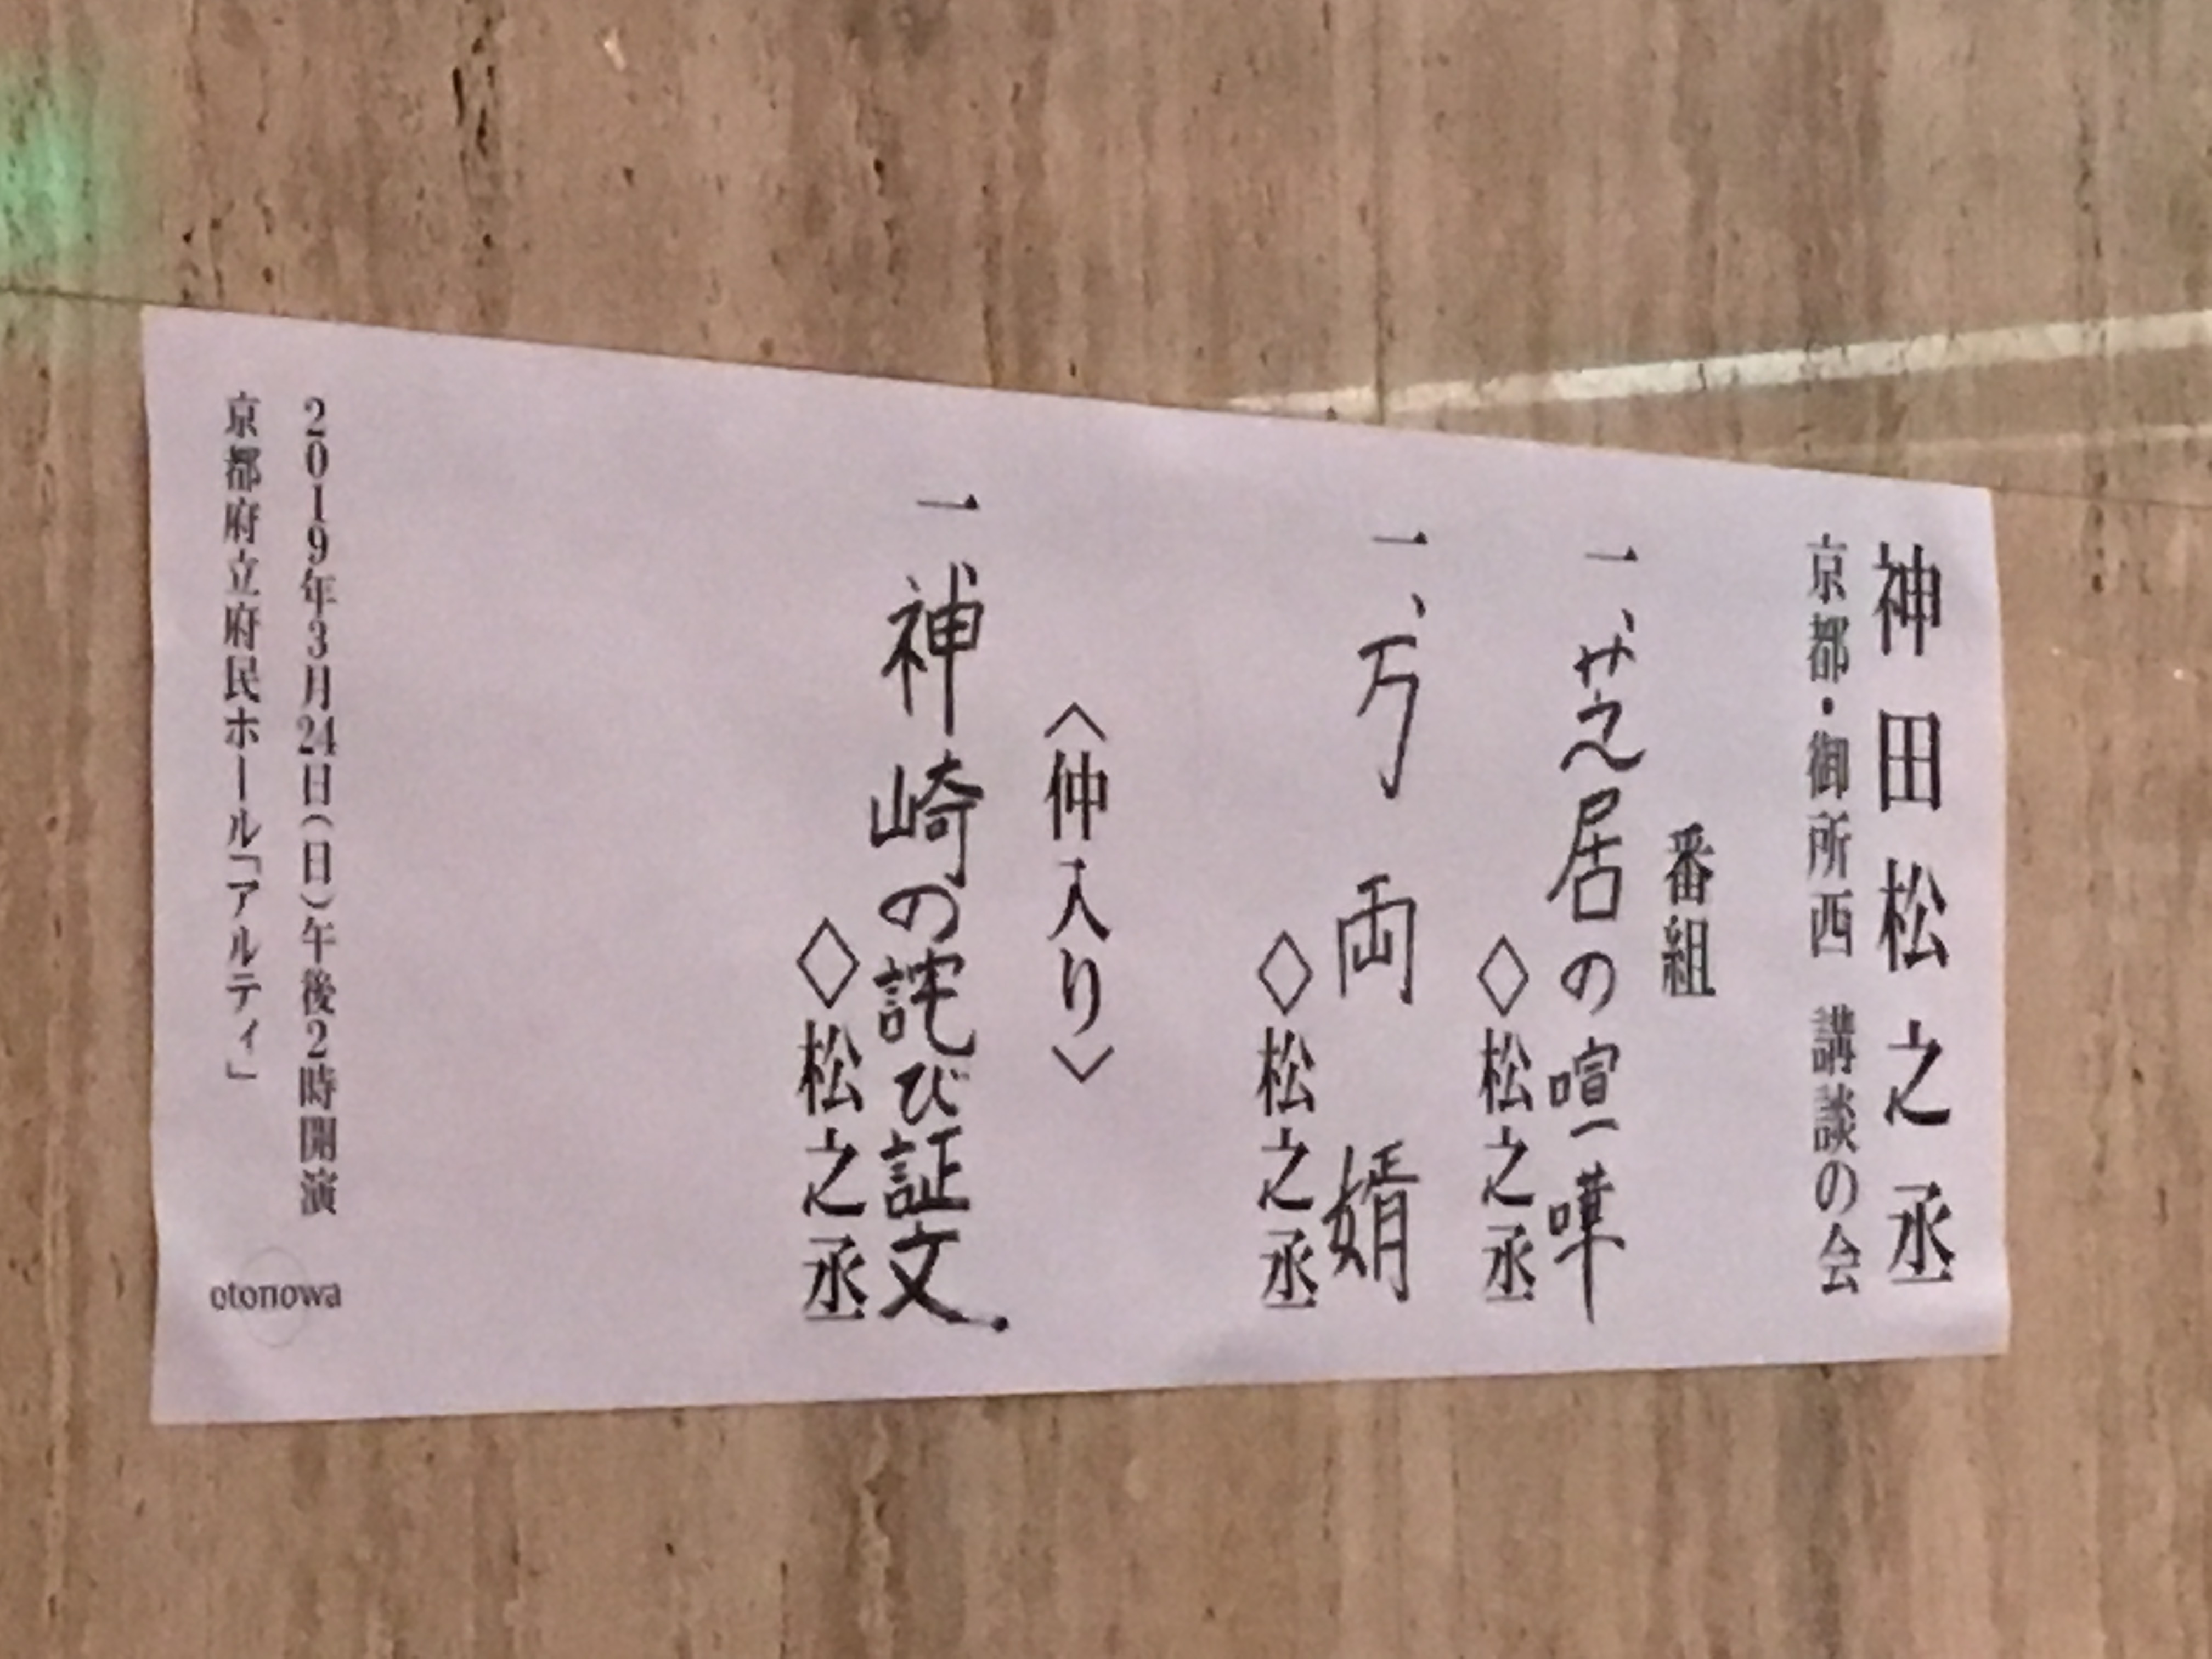 神田松之丞
京都・御所西 講談の会
番組
一、芝居の喧嘩
◇松之丞
一、万両婿
◇松之丞
〈仲入り〉
一、神崎の詫び証文.
◇松之丞
2019年3月24日(日)午後2時開演
京都府立府民ホール「アルティ」
otonowa